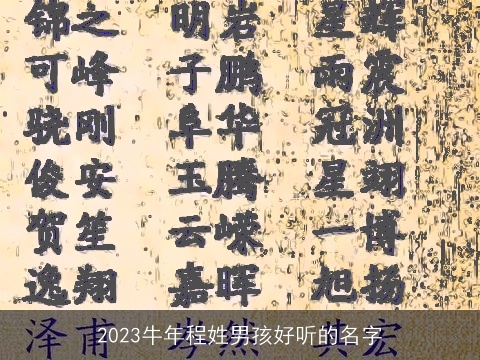 锦之 明岩 星辉
可峰 子鹏 雨震
骁刚 阜华 冠洲
俊安 玉腾 星翊
贺笙 云嵘 一博
逸翔 嘉晖 旭扬
泽甫 孝然 其宏
2023牛年程姓男孩好听的名字